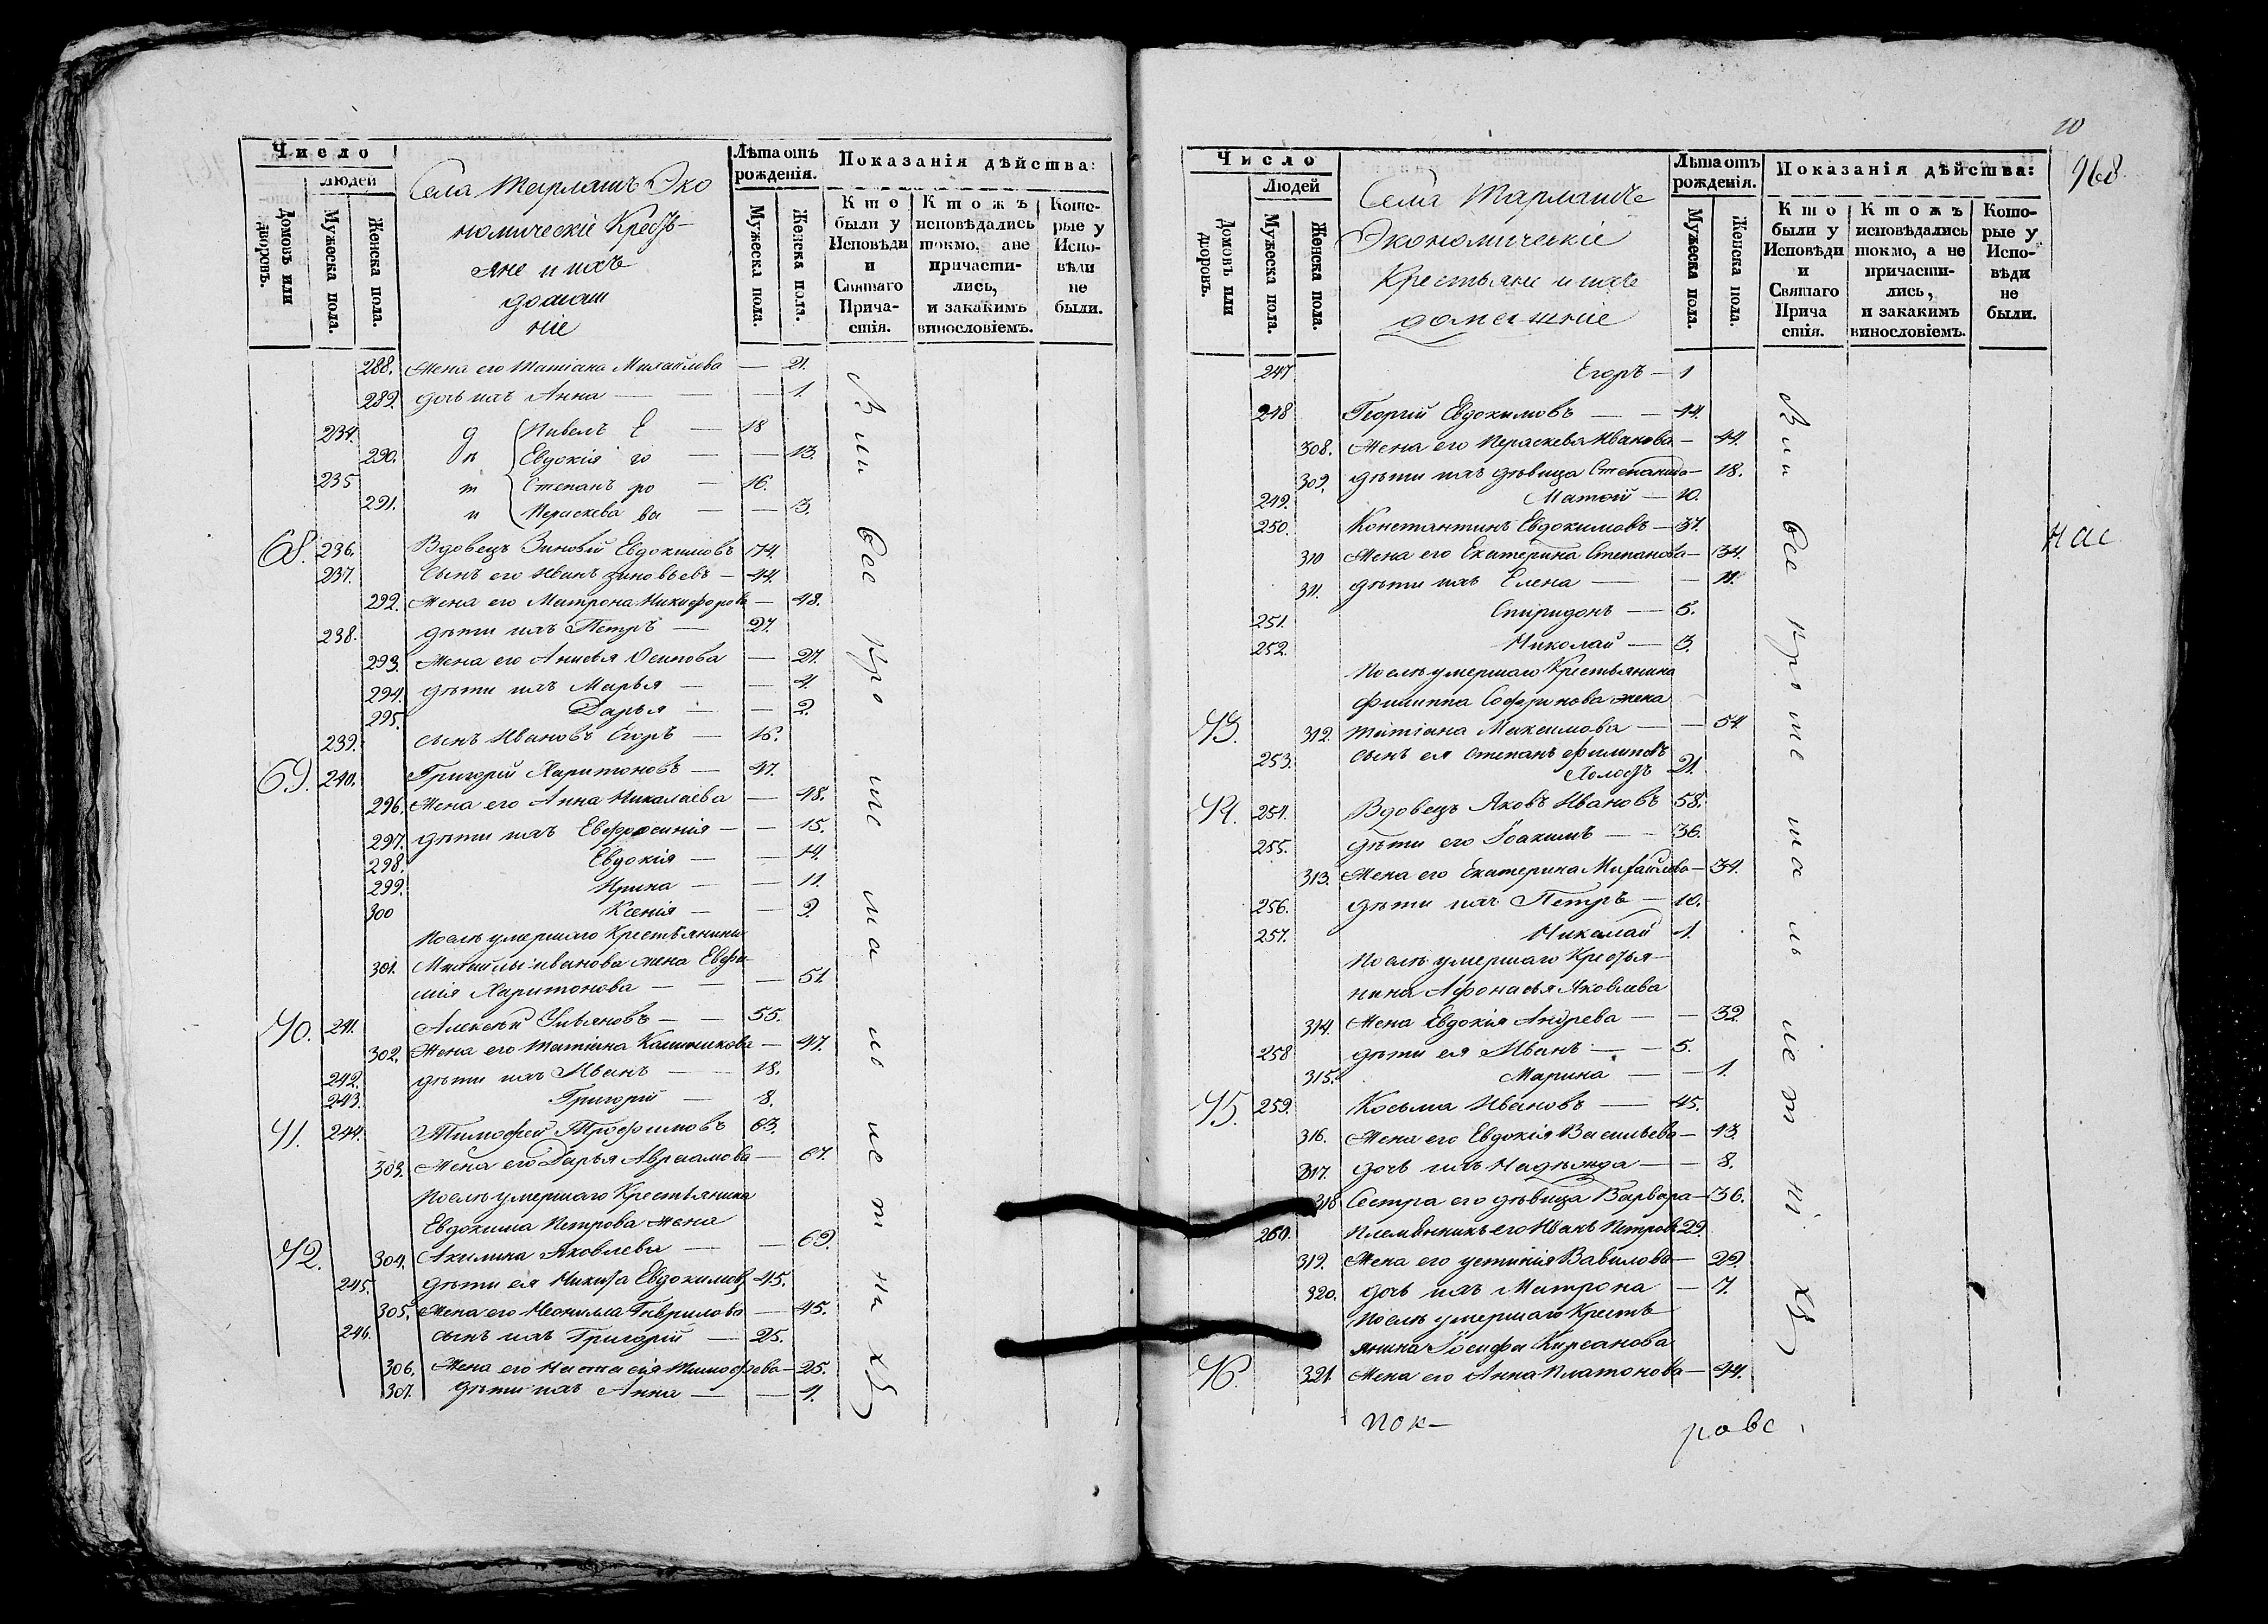 Число
Людей
Домовъ или дворовъ.
Мужеска пола.
Женска пола.
Села Тарлашъ Эко
номическіе Крестъ-
яне и ихъ
домаш
ніе
Лѣта отъ рожденія.
Мужеска пола.
Женска пола.
Показанія дѣйства:
Кто были у Исповѣди и Святаго Прича-стія.
Ктожъ исповѣдались токмо, а не причасти-лись, и закакимъ винословіемъ.
Кото-рые у Испо-вѣди не были.
288. Жена его Татіана Михайлова — 21.
289. дочь ихъ Анна — 1.
234. д Павелъ Е — 18
290. ѣ Евдокія го — 13.
235 т Степанъ ро — 16.
291. и Параскева ва — 3.
68. 236. Вдовецъ Зиновій Евдокимовъ 74.
237. Сынъ его Иванъ Зиновьевъ — 44.
292. Жена его Матрона Никифорова — 48.
238. дѣти ихъ Петръ — 27.
293. Жена его Анисья Осипова — 27.
294. дѣти ихъ Марья — 4.
295. Дарья — 2.
239. сынъ Ивановъ Егоръ — 16.
69. 240. Григорій Харитоновъ — 47.
296. Жена его Анна Николаева — 48.
297. дѣти ихъ Евфросинія — 15.
298. Евдокія — 14.
299. Ирина — 11.
300 Ксенія — 9.
Послѣ умершаго Крестьянина
301. Михайлы Иванова жена Евфи
мія Харитонова — 51.
70. 241. Алексѣй Ульяновъ — 55.
302. Жена его Татіана Калинникова — 47.
242. дѣти ихъ Иванъ — 18.
243. Григорій — 8.
71. 244. Тимофей Трофимовъ 63.
303. Жена его Дарья Авраамова — 67.
Послѣ умершаго Крестьянина
Евдокима Петрова жена
72. 304. Акилина Яковлева — 69.
245. дѣти ея Никита Евдокимовъ 45.
305. Жена его Неонилла Гаврилова — 45.
246. сынъ ихъ Григорій — 25.
306. Жена его Настасія Тимофеева — 25.
307. дѣти ихъ Анна — 4.
Вси все кро ше ма ль ле т ни хъ
10
968
Число
Людей
Домовъ или дворовъ.
Мужеска пола.
Женска пола.
Села Тарлашъ
Экономическіе
Крестьяне и ихъ
домашніе
Лѣта отъ рожденія.
Мужеска пола.
Женска пола.
Показанія дѣйства:
Кто были у Исповѣди и Святаго Прича стія.
Ктожъ исповѣдались токмо, а не причасти-лись, и закакимъ винословіемъ.
Кото-рые у Испо-вѣди не были.
247 Егоръ — 1
248 Георгій Евдокимовъ — 44.
308. Жена его Параскева Иванова — 44.
309. дѣти ихъ дѣвица Степанида — 18.
249. Матѳій — 10.
250. Константинъ Евдокимовъ — 37.
310 Жена его Екатерина Степанова — 34.
311. дѣти ихъ Елена — 11.
251. Спиридонъ — 5.
252. Николай — 3.
Послѣ умершаго Крестьянина
Филиппа Софронова жена
73. 312. Татіана Максимова — 54
253. сынъ ея Степанъ Филиповъ
Холостъ 21.
74. 254. Вдовецъ Яковъ Ивановъ 58.
255. дѣти его Іоакимъ — 36.
313. Жена его Екатерина Михайлова — 34.
256. дѣти ихъ Петръ — 10.
257. Николай 1.
Послѣ умершаго Крестья-
нина Афонасья Яковлева
314. Жена Евдокія Андрева — 32
258 дѣти ея Иванъ — 5.
315. Марина — 1.
75. 259. Косьма Ивановъ — 45.
316. Жена его Евдокія Васильева — 43
317. дочь ихъ Надѣжда — 8.
318 Сестра его дѣвица Варвара — 36.
260. Племянникъ его Иванъ Петровъ 29.
319. Жена его Устинія Вавилова — 29.
320. дочь ихъ Матрона — 7.
Послѣ умершаго Кресть
янина Іосифа Кирсанова
76. 321. Жена его Анна Платонова — 44.
Вси все кроше ма ль лет ні хъ
нас
пок- ровс